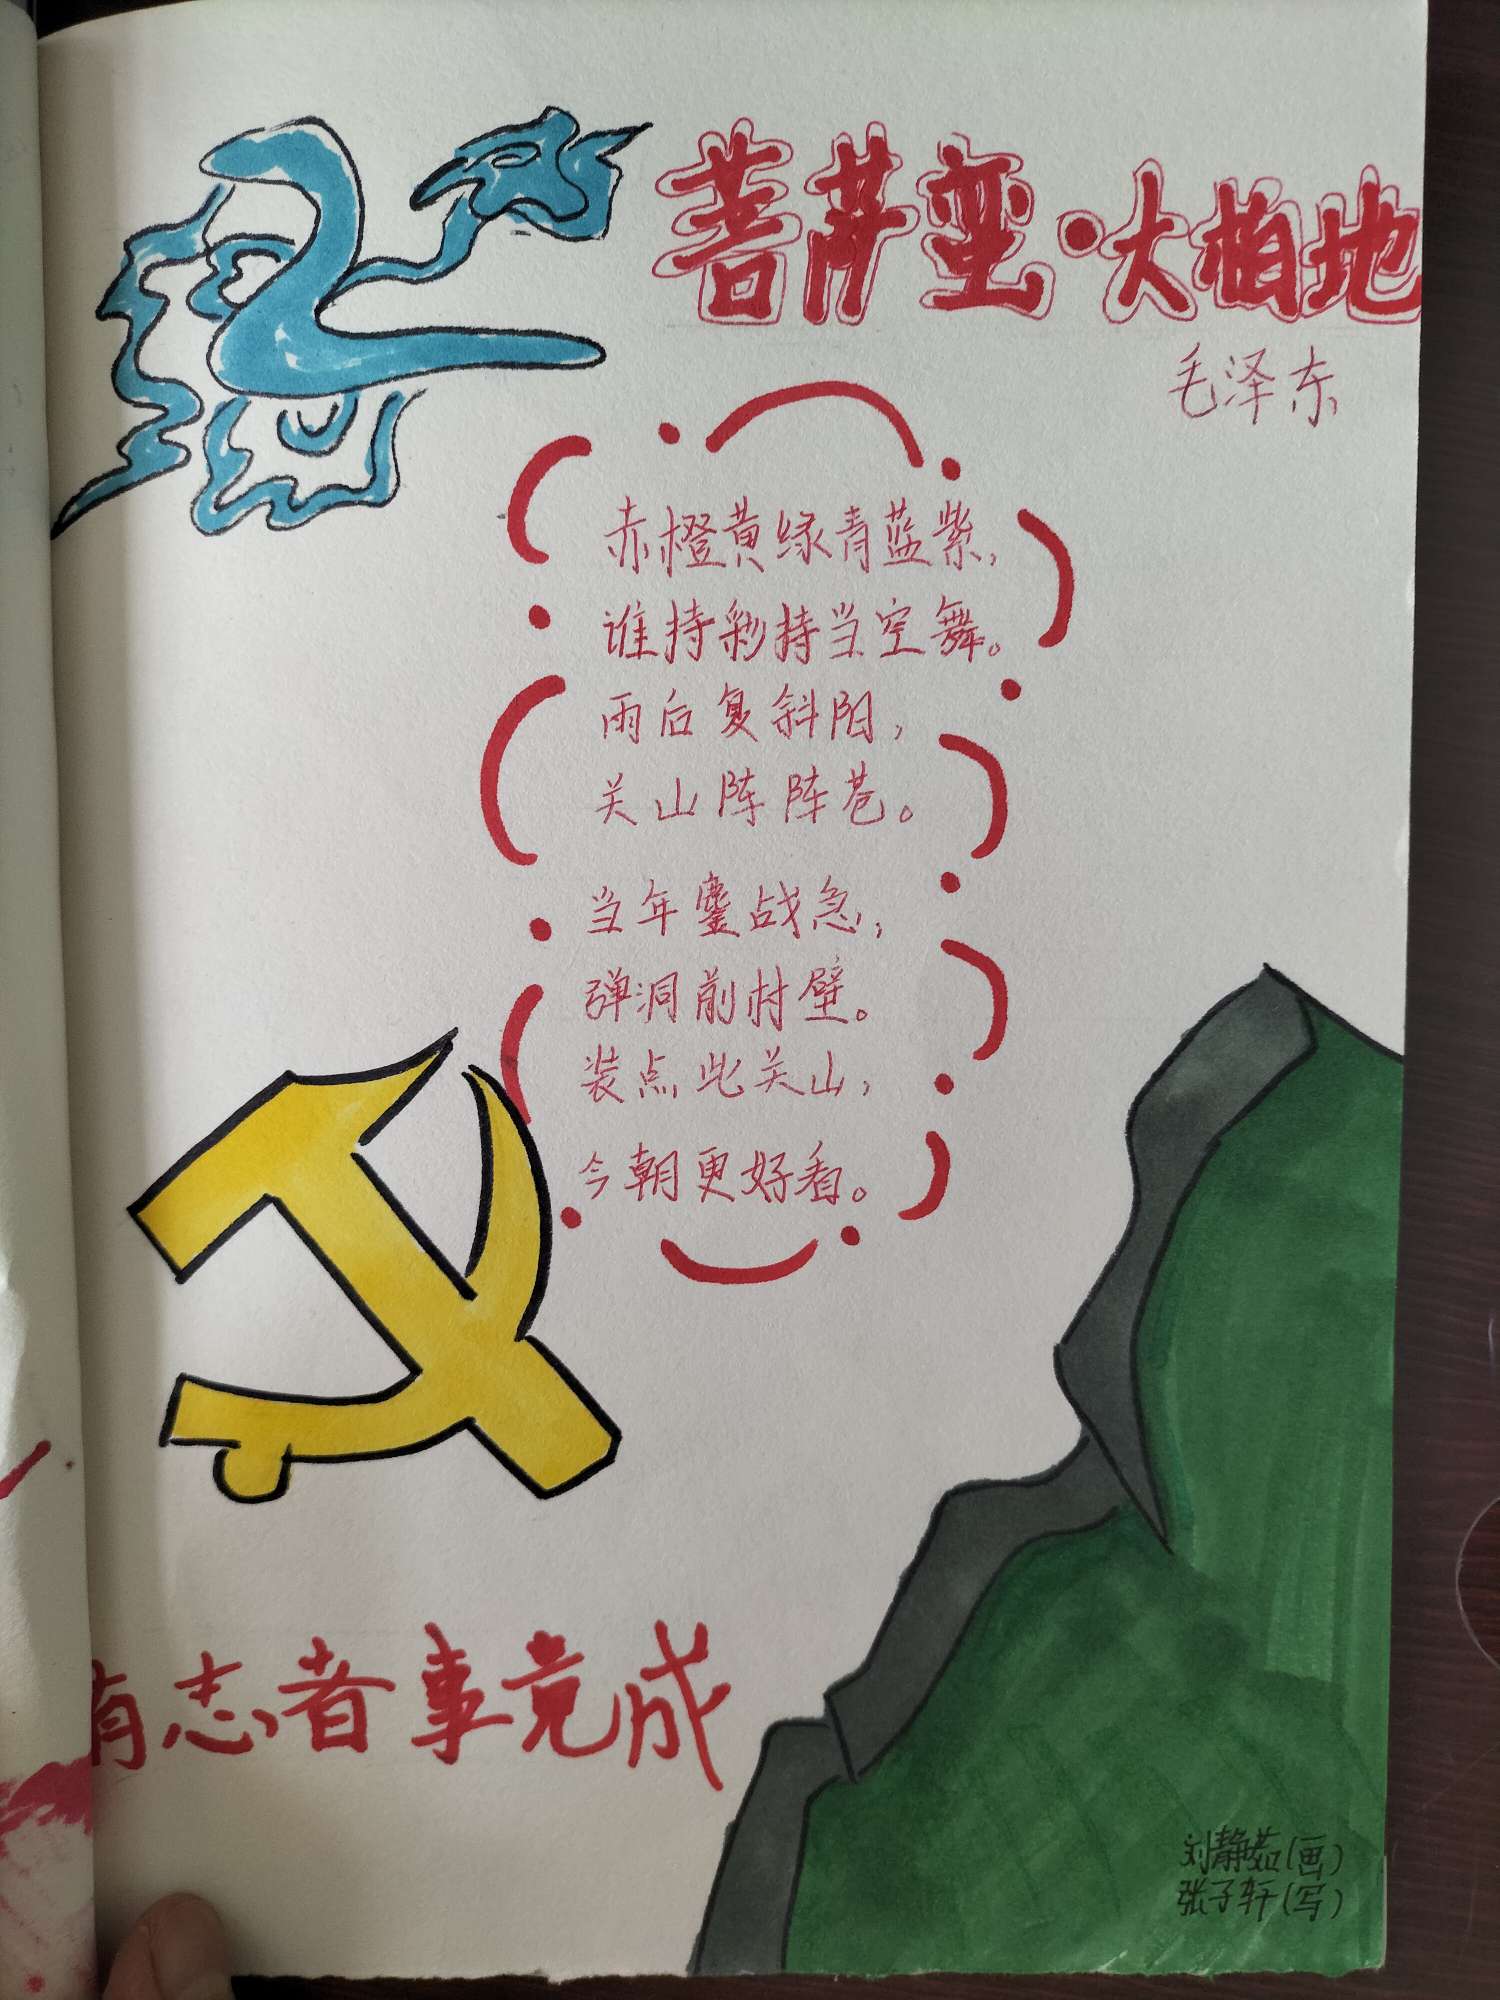 菩萨蛮·大柏地
毛泽东
赤橙黄绿青蓝紫,
谁持彩持当空舞。
雨后复斜阳,
关山阵阵苍。
当年鏖战急,
弹洞前村壁。
装点此关山,
今朝更好看。
有志者事竟成
刘静茹(画)
张子轩(写)